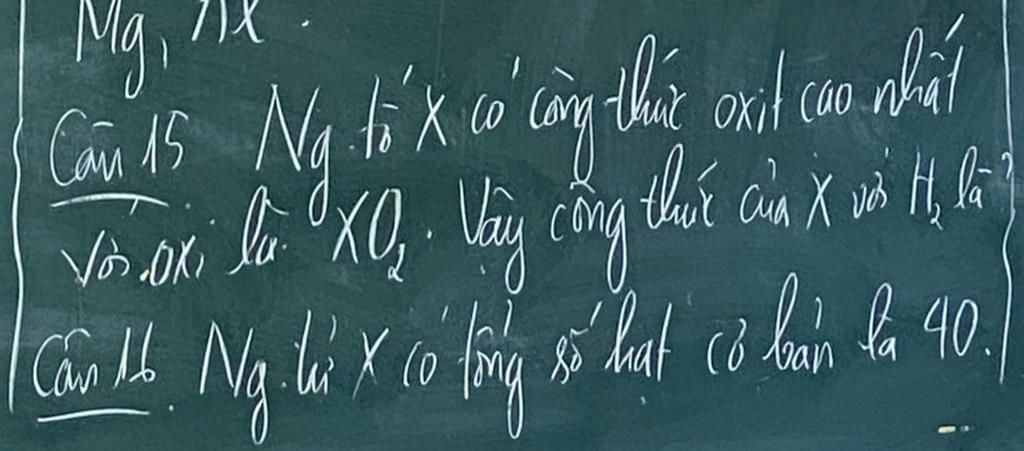 Mg,
Câu 15 Ng. tố X có công thức oxit cao nhất
Với oxi là XO₂. Vậy công thức của X với H₂ là?
Câu 16. Ng. tử X có tổng số hạt cơ bản là 40.